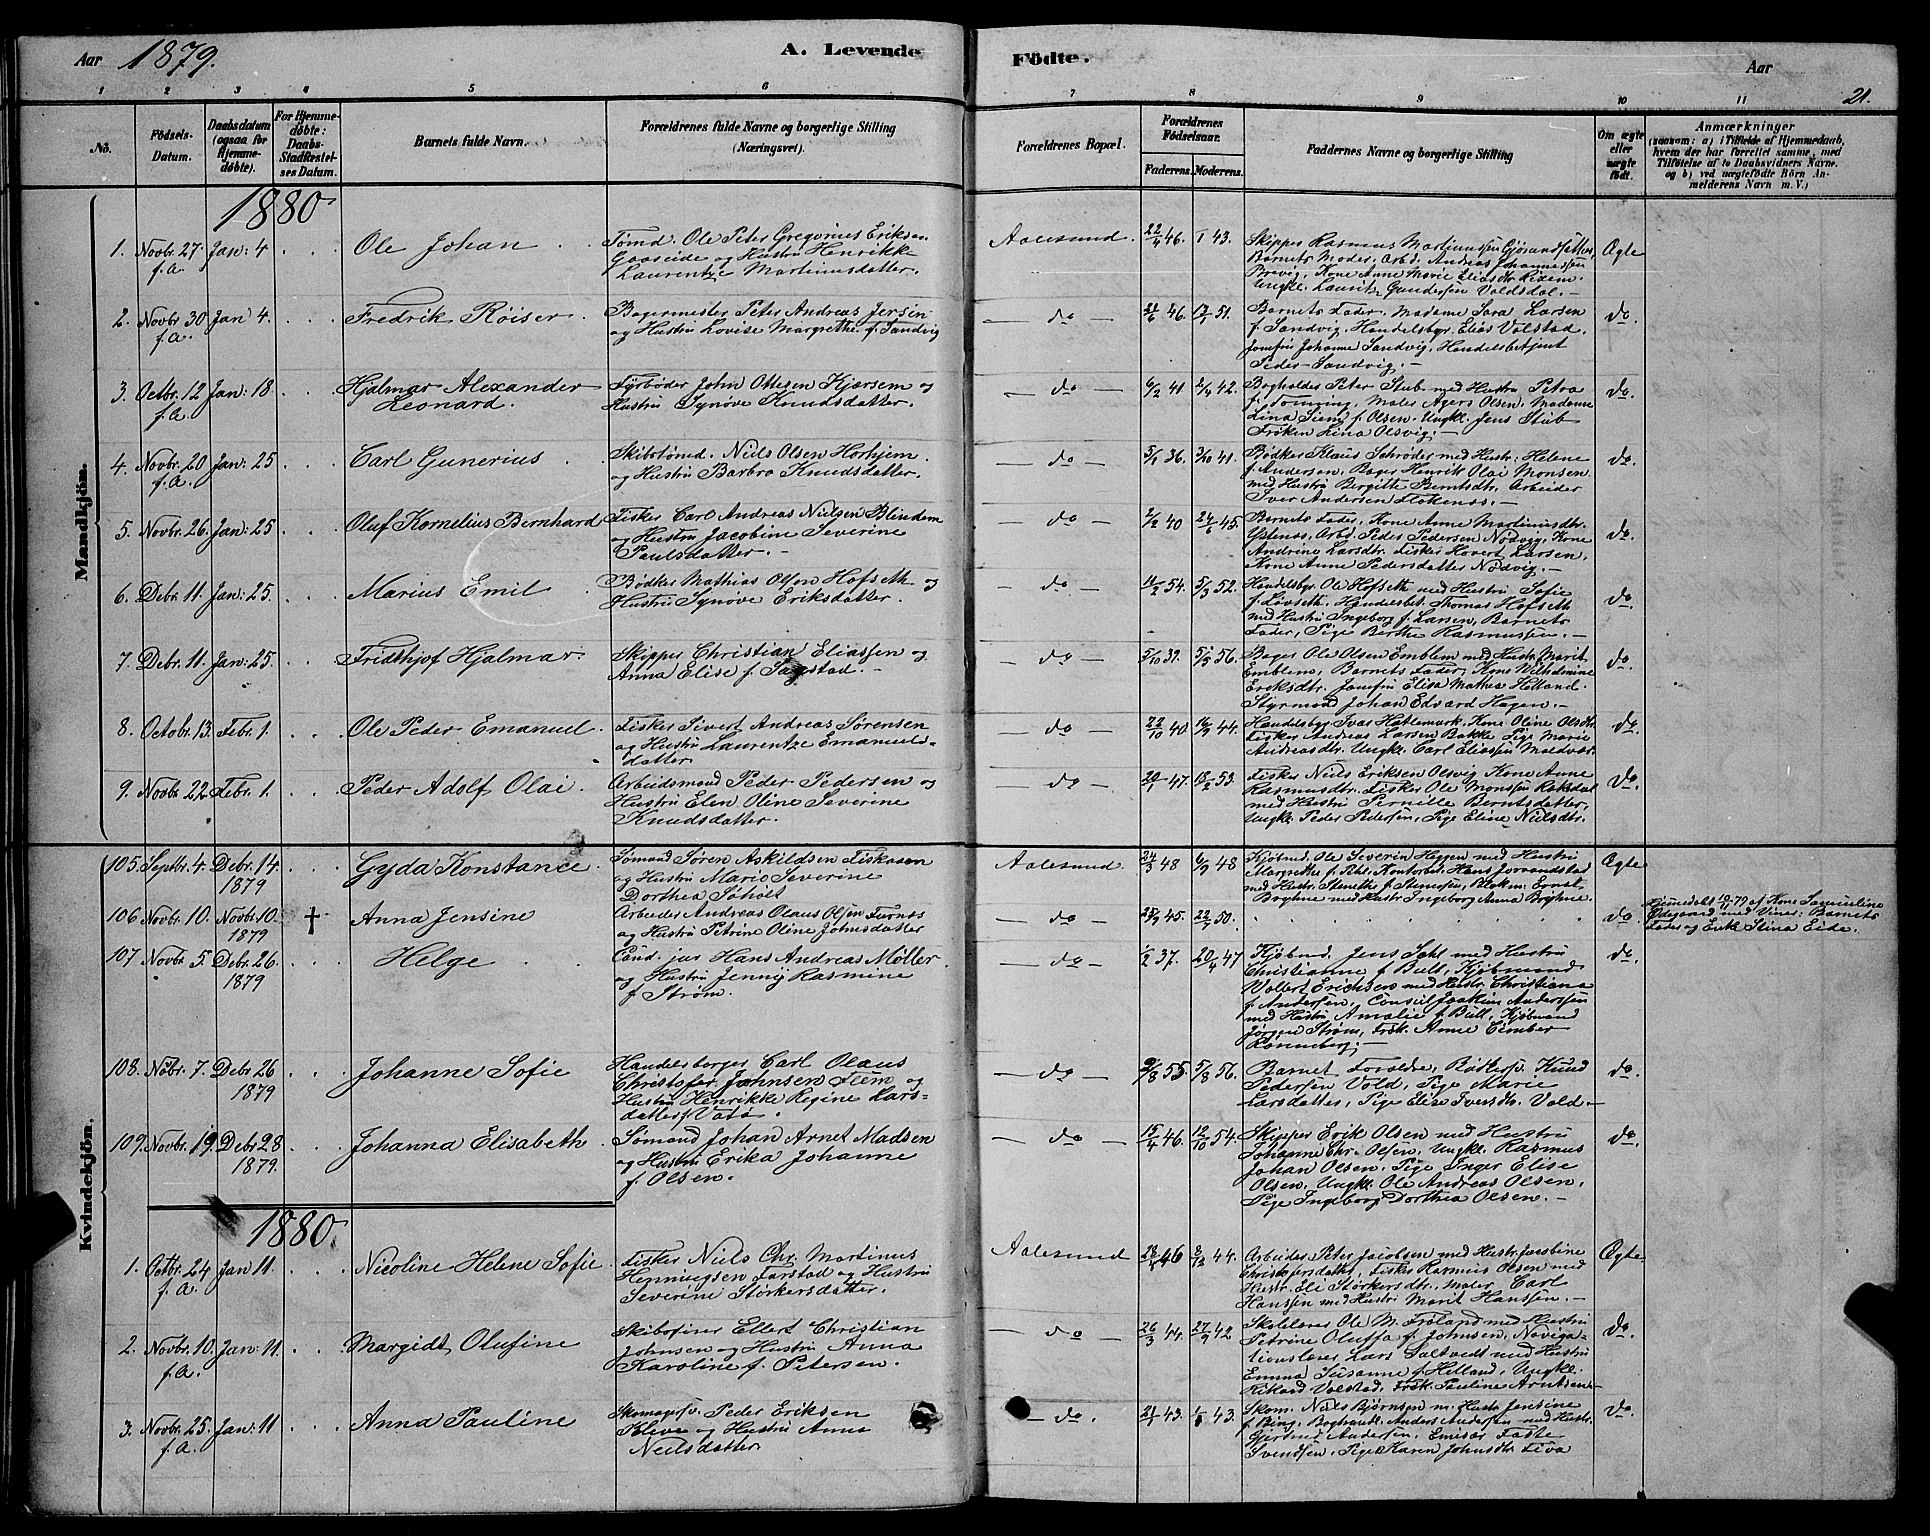 Aar 1879. A. Levende Födte. Aar 21.
1 2 3 4 5 6 7 8 9 10 11
No. Födsels-Datum. Daabsdatum (ogsaa for Hjemmedöbte). For Hjemmedöbte: Daabs-Stadfæstelses Datum. Barnets fulde Navn. Forældrenes fulde Navne og borgerlige Stilling (Næringsvei). Forældrenes Bopæl. Forældrenes Födselsaar. Faderens. Moderens. Faddernes Navne og borgerlige Stilling Om ægte eller uægte födt. Anmærkninger (saasom: a) i Tilfælde af Hjemmedaab, hvem der har forrettet samme, med Tilföielse af to Daabsvidners Navne, og b) ved uægtefödte Börn Anmelderens Navn m. V.)
Mandkjön.
1880
1. Novbr. 27 f.A. Jan: 4 Ole Johan
Tömd. Ole Peter Gregorius Eriksen
Gaaseide og Hustru Henrikke
Laurentze Martinusdatter.
Aalesund. 22/4 46. 43.
Skipper Rasmus Martinussen
Barnets Moder, Arb. Andreas Johannessen
Brevig, Kone Anne Marie Eliasdtr. Rixem.
Ungkl. Laurits Gundersen Voldsdal.
Ægte
2. Novbr 30 f.A. Jan 4. Fredrik Röiser.
Bagermester Peter Andreas Jersin
og Hustru Lovise Margrethe f. Sandvig
do 46. 51.
Barnets Fader. Madame Sara Larsen
f. Sandvig, Handelsbgr. Elias Volstad.
Jomfru Johanne Sandvig. Handelsbetjent
Peder Sandvig.
do.
3. Octbr. 12 f.A. Jan: 18. Hjalmar Alexander
Leonard.
Fyrböder John Ottesen Kjersem og
Hustru Synöve Knudsdatter.
do 6/2 41 2/4 42.
Bogholder Peter Stub med Hustru Petra
f. Tönning, Maler Agers Olsen, Madame
Lina Siem f. Olsen. Ungkl. Jens Stub
Fröken Lina Olsvig.
do.
4. Novbr. 20 f.A. Jan: 25 Carl Gunerius
Skibstömd. Niels Olsen Horhjem
og Hustru Barbro Knudsdatter.
do 5/1 36. 3/10 41.
Bödker Klaus Schröder med Hustr: Helene
f. Andersen. Bager Henrik Olai Monsen
med Hustru Bergitte Berntsdtr. Arbeider
Iver Andersen Flokenes.
do
5. Novbr. 26. Jan: 25 Oluf Kornelius Bernhard
Fisker Carl Andreas Nielsen Blindem
og Hustru Jacobine Severine
Paulsdatter.
do 2/2 40 24/6 45.
Barnets Fader, Kone Anne Martinusdtr.
Ystenes, Arbd. Peder Pedersen Nödvig, Kone
Andrine Larsdtr. Fisker Hovert Larsen,
Kone Anne Pedersdatter Nödvig.
do.
6. Debr. 11. Jan: 25. Marius Emil
Bödker Mathias Olsen Hofseth og
Hustru Synöve Eriksdatter.
do 11/2 54. 5/3 52.
Handelsbgr. Ole Hofseth med Hustru Sofie
f. Lövseth. Handelsbet. Thomas Hofseth
med Hustru Ingeborg f. Larsen, Barnets
Fader, Pige Berthe Rasmussen.
do.
7. Debr. 11. Jan: 25. Fridthjof Hjalmar.
Skipper Christian Eliassen og
Anna Elise f. Sagstad.
do 5/10 39. 56.
Bager Ole Olsen Emblem med Hustr. Marit
Emblem, Barnets Fader, Kone Wilhelmine
Eriksdtr. Jomfru Elisa Mathea Helland.
Styrmand Johan Edvard Hagen.
do.
8. Octobr. 13. Febr. 1. Ole Peder Emanuel.
Fisker Sivert Andreas Sörensen
og Hustru Laurentze Emanuels-
datter.
do 22/10 40. 16/9 44.
Handelsbgr Ivar Hatlemark, Kone Oline Olsdtr.
Fisker Andreas Larsen Bakke Pige Marie
Andreasdtr. Ungkl. Carl Eliassen Moldvær.
do.
9. Novbr. 22. Febr. 1. Peder Adolf Olai.
Arbeidsmand Peder Pedersen og
Hustru Elen Oline Severine
Knudsdatter.
do 20/1 47. 18/2 53.
Fisker Niels Eriksen Olsvig Kone Anne
Rasmusdtr. Fisker Ole Monssen Roksdal
med Hustru Pernille Berntsdatter,
Ungkl. Peder Pedersen, Pige Eline Nielsdtr.
do.
Kvindekjön.
105. Septbr. 4. Debr. 14. 1879 Gyda Konstance
Sömand Sören Askildsen Fiskaaen
og Hustru Marie Severine
Dorthea Söholt
Aalesund. 24/3 48 6/9 48
Kjöbmd. Ole Severin Heggen med Hustru
Margrethe f. Kontorbet. Hans
med Hustr. f. Stenersen, Blokm. Ernst
Bryhne med Hustr. Ingeborg Anna Bryhne.
Ægte
106 Novbr. 10. Novbr. 10. 1879 † Anna Jensine
Arbeider Andreas Olaus Olsen Furnes
og Hustru Petrine Oline Johnsdatter
do 25/9 45. 22/7 50.
do
Hjemmedöbt 10/11 79 af Kone Samueline
Ödegaard med Vidner: Barnets
Fader og Enke Stina Eide.
107 Novbr. 5. Debr. 26. 1879 Helge
Cand. jur Hans Andreas Möller
og Hustru Jenny Rasmine
f. Ström.
do 1/2 37. 20/4 47
Kjöbmd. Jens med Hustru
Christianne f. Bull, Kjöbmand
Volbert Erichsen med Hustr. Christiana
f. Andersen, Consul Joakim Anderssen
med Hustru Amalie f. Bull, Kjöbmand
Jörgen Ström, Frök. Anne Eimber
Rönneberg.
do.
108. Nobr. 7. Debr 26 1879 Johanne Sofie
Handelsborger Carl Olaus
Christofer Johnsen Flem og
Hustru Henrikke Regine Lars-
datter f. Vatö.
do 9/8 55. 5/8 56.
Barnet Forældre, Bödkersv. Knud
Pedersen Vold, Pige Marie
Larsdatter, Pige Elise Iversdtr. Vold.
do.
109. Novbr. 19. Debr. 28 1879. Johanna Elisabeth
Sömand Johan Arnet Madsen
og Hustru Erika Johanne
f. Olsen.
do 15/4 46. 12/10 54.
Skipper Erik Olsen med Hustru
Johanne Chr. Olsen, Ungkl. Rasmus
Johan Olsen. Pige Inger Elise
Olsen, Ungkl. Ole Andreas Olsen.
Pige Ingeborg Dorthea Olsen.
do.
1880.
1. Octbr. 24 f.A. Jan 11. Nicoline Helene Sofie.
Fisker Niels Chr. Martinus
Henningsen Farstad og Hustru
Severine Störkersdatter.
Aalesund 46 44.
Arbeider Peter Jacobsen med Hustr. Jacobine
Christofersdatter, Fisker Rasmus Olsen med
Hustr. Eli Störkersdtr, Maler Carl
Hanssen med Hustru Marit Hanssen.
Ægte
2. Novbr. 10. f.A. Jan: 11. Margidt Olufine
Skibsfører Ellert Christian
Johnsen og Hustru Anna
Karoline f. Petersen.
do 26/3 44. 27/9 42.
Skolelærer Ole M. Fröland med Hustru
Petrine Oluffa f. Johnsen, Naviga-
tionslærer Lars Saltvedt med Hustru
Emma Susanne f. Helland, Ungkl.
Rikard Volstad, Frök. Pauline Arntsen.
do.
3. Novbr. 25. f.A. Jan: 11 Anna Pauline
Skomagersv. Peder Eriksen
Kleve og Hustru Anna
Nielsdatter
do. 43. 43.
Skom. Niels Björnsen m. Hustr Jensine
f. Bing. Boghandl. Anders Andersen med Hustr.
Gjertrud Andersen. Emisær Faste
Svendsen, Pige Karen Johnsdtr Fiva
do.